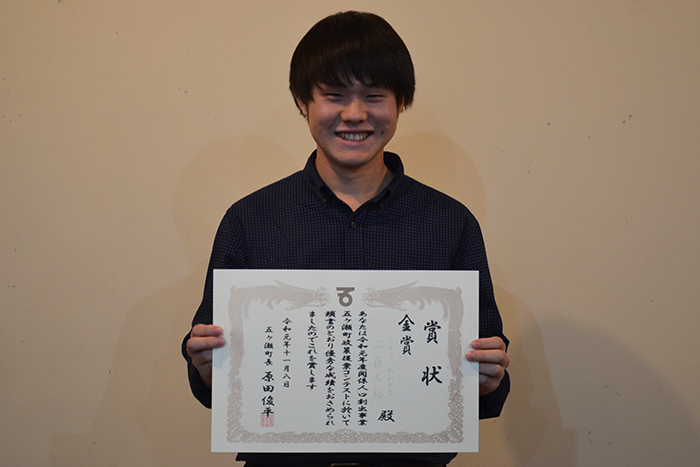 賞状
金賞
殿
あなたは令和元年度関係人口創出事業
五ヶ瀬町政策提案コンテストに於いて
頭書のとおり優秀な成績をおさめられ
ましたのでこれを賞します
令和元年十一月八日
五ヶ瀬町長 原田俊平